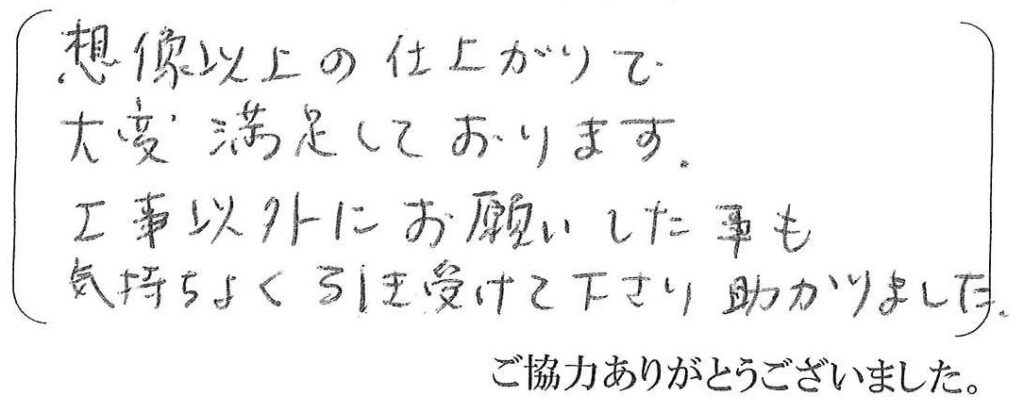 想像以上の仕上がりで
大変満足しております。
工事以外にお願いした事も
気持ちよく引き受けて下さり助かりました。
ご協力ありがとうございました。